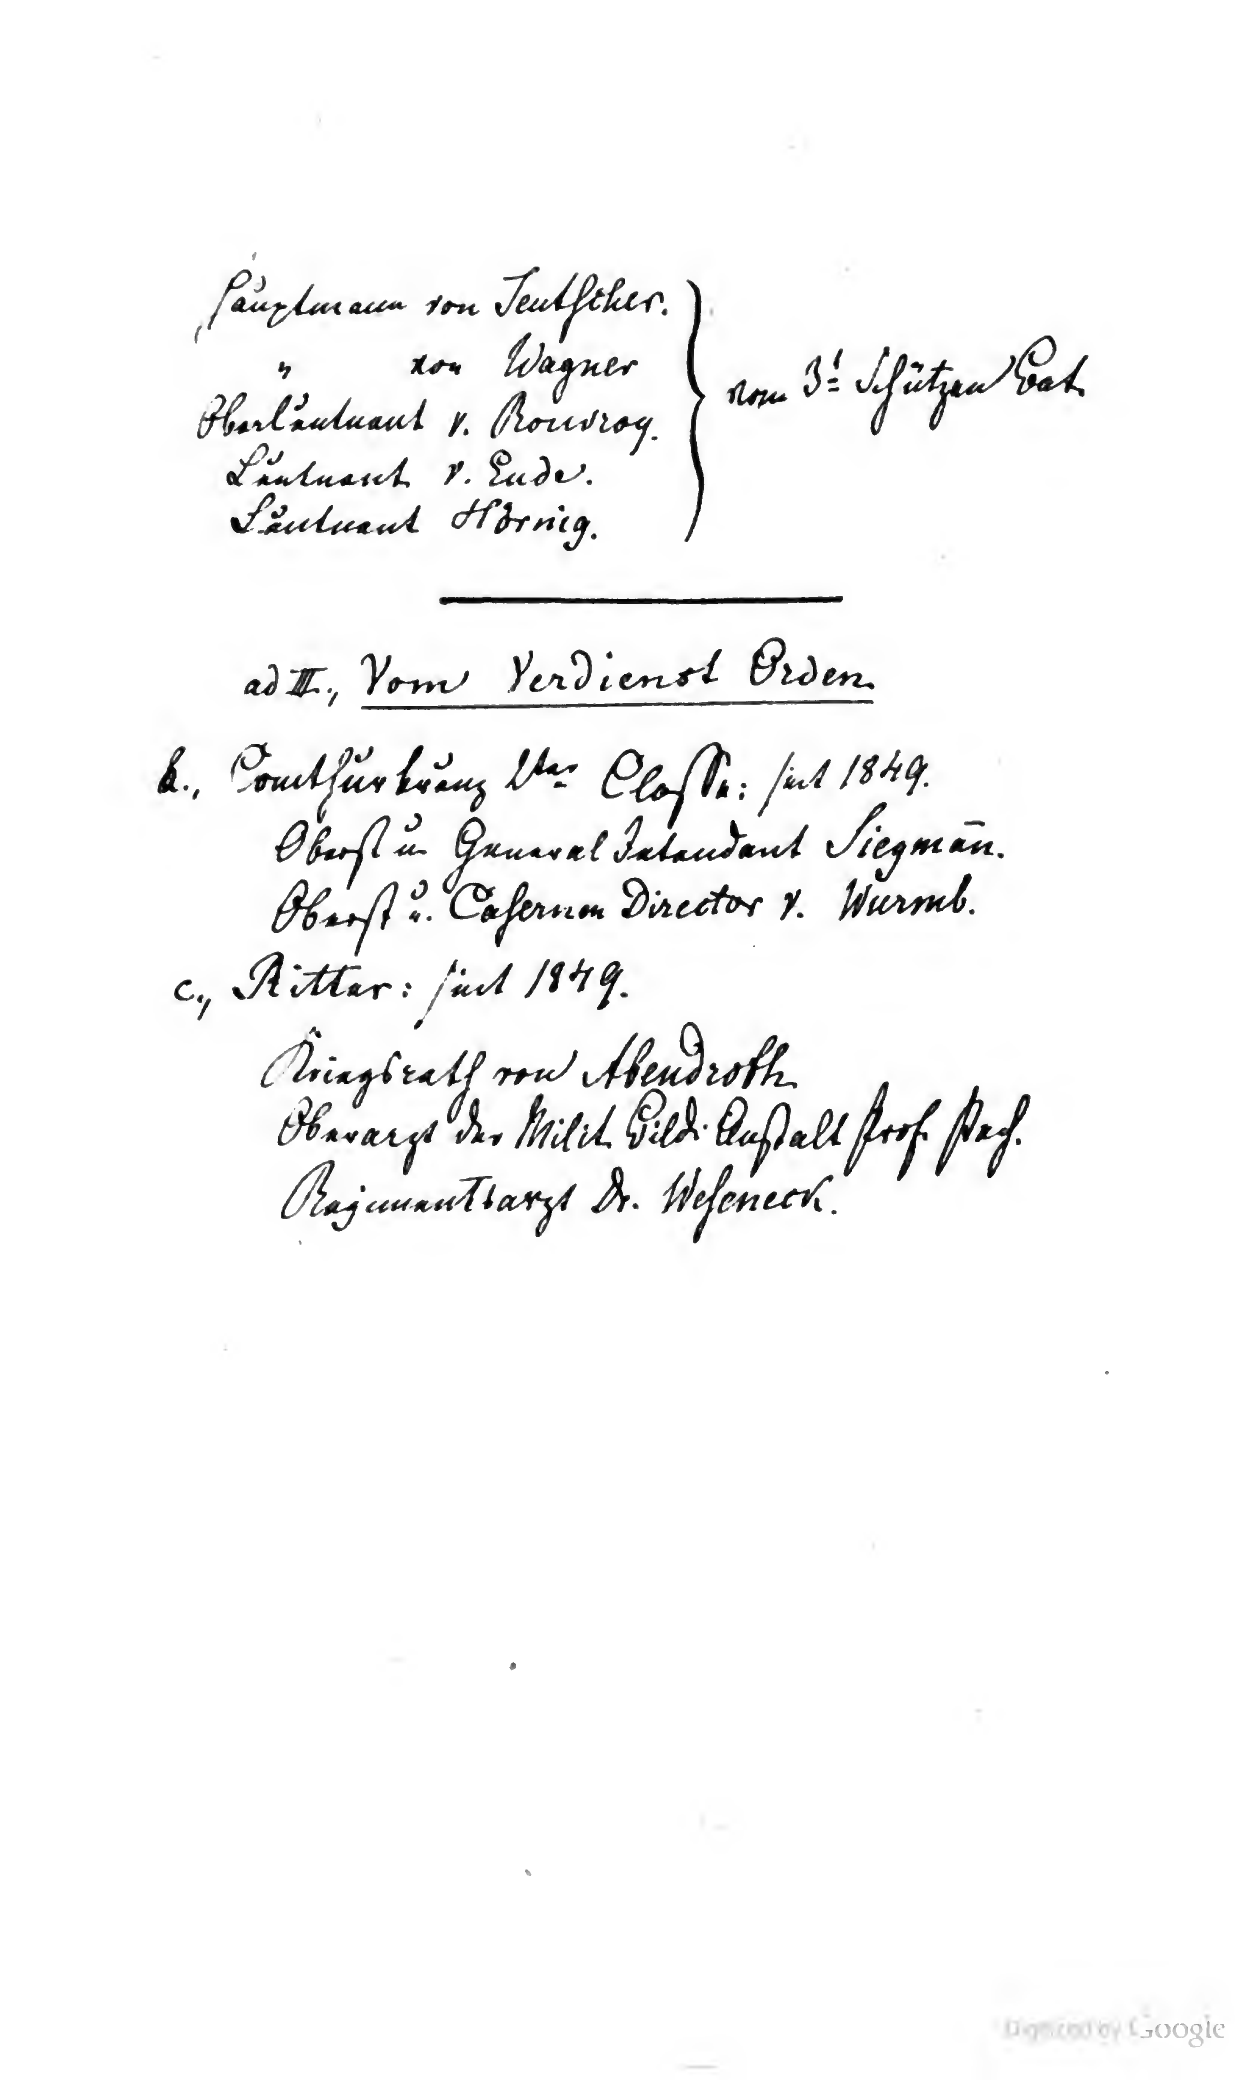 Hauptmann von Teutscher.
" von Wagner
Oberleutnant v. Rouvroy.
Leutnant v. Ende.
Leutnant Hörnig.
vom 3t. Schützen Bat.
ad III., Vom Verdienst Orden.
b., Comthurkreuz 2ter Classe: seit 1849.
Oberst u. General Intendant Siegman̄.
Oberst u. Casernen Director v. Wurmb.
c., Ritter: seit 1849.
Kriegsrath von Abendroth
Oberarzt der Milit. Bild. Anstalt Prof. Pech.
Regimentsarzt Dr. Weseneck.
Digitized by Google